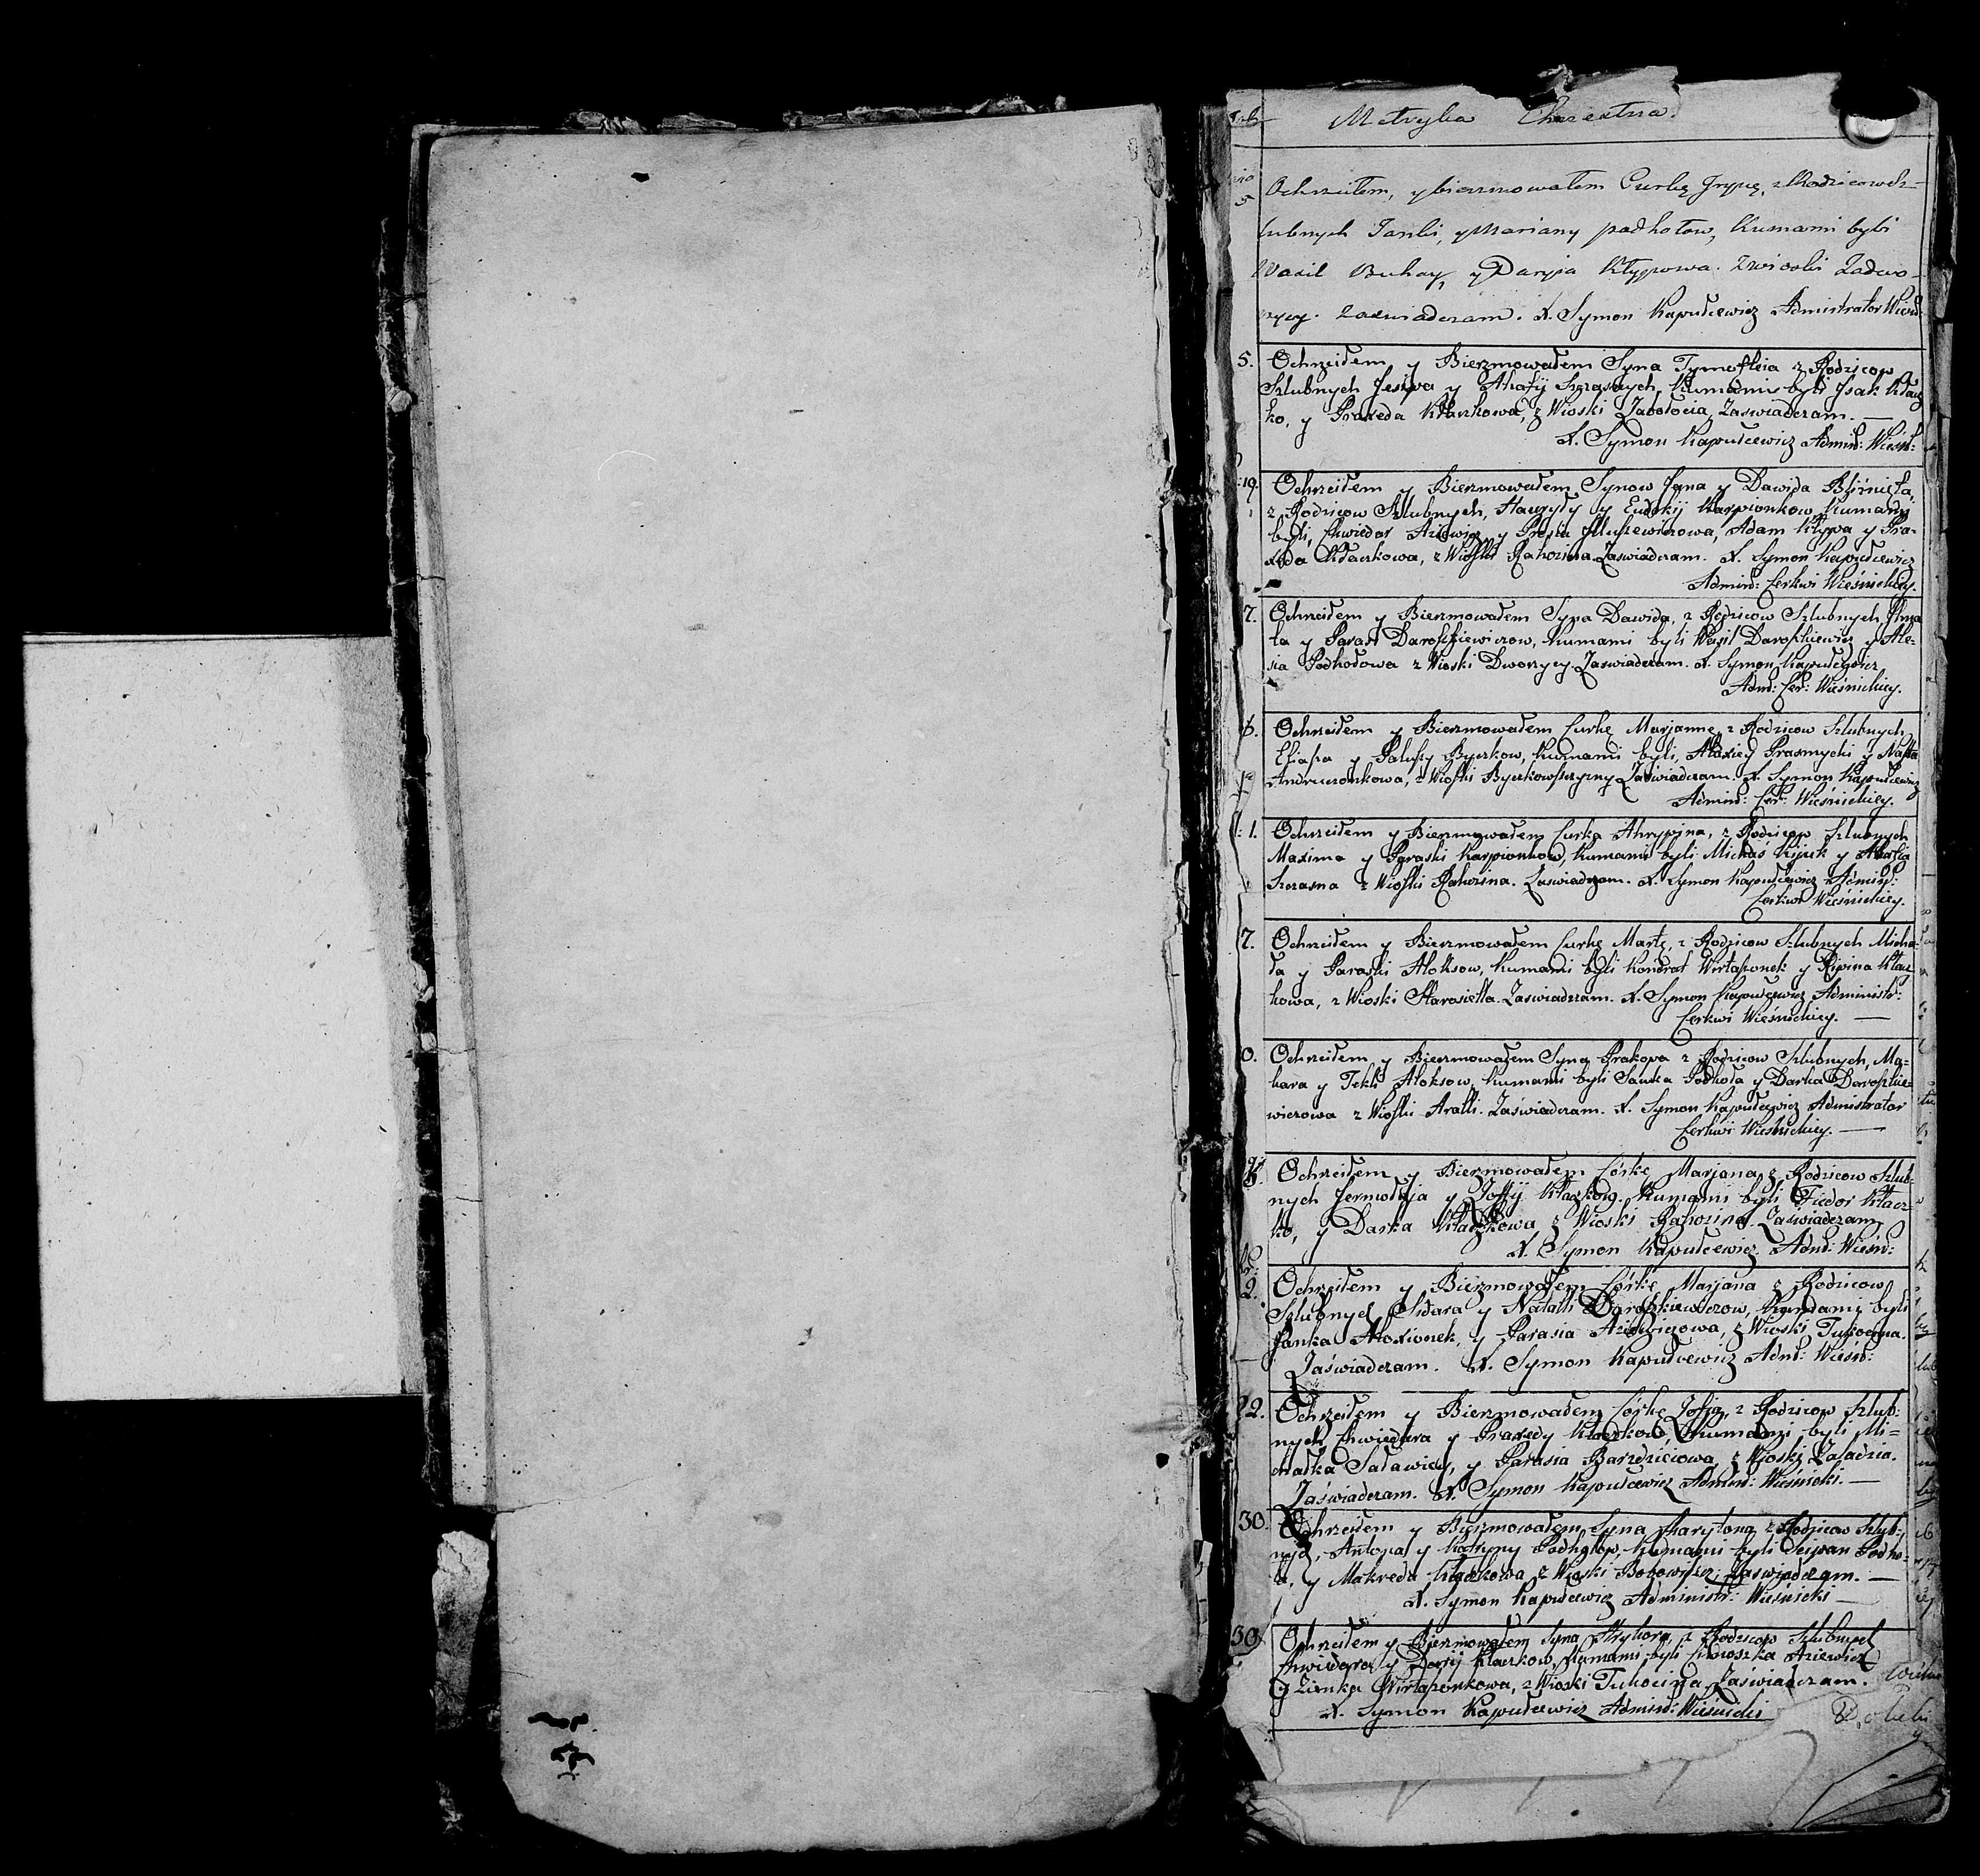 Metryka Chrzestna.
5 Ochrzciłem, y bierzmowałem Curkę, z Rodzicow
lubnych Janki, y Mariany Padhołow, Kumami byli
Wasil Buhay, y Daryia Kłypowa. Zwioski Zadwo-
rycy. Zaswiadczam. X. Symon Kapuscewicz Admistrator
5. Ochrzciłem y Bierzmowałem Syna z Rodzicow
Szlubnych y Ahafij Szczasnych, Kumami byli Jsak Kłacz
ko, y Praxeda Kłaczkowa, z Wioski Zabołocia, Zaswiadczam. —
X. Symon Kapuscewicz Admin: Wieśń:
19. Ochrzciłem y Bierzmowałem Synow Jana y Dawida Bliźnięta,
z Rodzicow Szlubnych, Hawryły y Eudokij Karpionkow, Kumamy
byli, Chwiedor Aziewicz y, Adam Kłypa y Pra-
xeda Kłaczkowa, z Wioski Rahozina Zaswiadczam. X. Symon Kapuscewicz
Admin: Cerkwi Wieśnickiey.
7. Ochrzciłem y Bierzmowałem Syna Dawida, z Rodzicow Szlubnych
ła y Daroszkiewiczow, Kumami byli Wasil Daroszkiewicz y Ale-
sia Podhołowa z Wioski Dworycy Zaswiadczam. X. Symon Kapuscewicz
Adm: Cer: Wieśnickiey.
6. Ochrzciłem y Bierzmowałem Curkę Marjannę, z Rodzicow Szlubnych
y Byczkow, Kumami byli, Alaxiey y Nasta
Andruczonkowa, z Wioski Byczkowszczyzny Zaświadczam. X. Symon Kapuscewicz
Admin: Cer: Wieśnickiey.
1. Ochrzciłem y Bierzmowałem Curkę Ahrypina, z Rodzicow Szlubnych
Maxima y Paraski Karpionkow, Kumami byli Michaś y Ahafia
Szczasna z Wioski Rahozina. Zaswiadczam. X. Symon Kapuscewicz Admin:
Cerkwi Wieśnickiey.
7. Ochrzciłem y Bierzmowałem Curkę Martę, z Rodzicow Szlubnych Micha-
ła y Paraski Aloksow, Kumami byli Kondrat y Kłacz
kowa, z Wioski Starosiella. Zaswiadczam. X. Symon Kapuscewicz Administr:
Cerkwi Wieśnickiey. —
0. Ochrzciłem y Bierzmowałem Syna Prakopa z Rodzicow Szlubnych, Ma-
kara y Tekli Aloksow, Kumami byli Sawka Podhoła y Darka Daroszkie-
wiczowa z Wioski Aralli. Zaświadczam. X. Symon Kapuscewicz Administrator
Cerkwi Wieśnickiey. —
Ochrzciłem y Bierzmowałem Córkę Marjana z Rodzicow Szlub-
nych y Zofij Kłaczkow. Kumami byli Fiedor Kłacz-
ko, y Darka Kłaczkowa z Wioski Rahozina. Zaświadczam
X. Symon Kapuscewicz Adm: Wieśn:
2. Ochrzciłem y Bierzmowałem Córkę Marjana z Rodzicow
Szlubnych y Natalli Daroszkiewiczow, Kumami byli
Janka Aloxionek, y Parasia Aziewiczowa, z Wioski Tuhocina.
Zaświadczam. X. Symon Kapuscewicz Adm: Wieśn:
22. Ochrzciłem y Bierzmowałem Córkę Zofja, z Rodzicow Szlub:
nych, Chwiedara y Praxedy Kłaczkow, Kumami byli Mi=
chałka Saławiey, y Parasia, z Wioski.
Zaświadczam. X. Symon Kapuscewicz Admin: Wieśnicki. —
30. Ochrzciłem y Bierzmowałem Syna Harytona z Rodzicow Szlub-
nych, Antopa y Katryny Podhołow, Kumami byli Podho-
ła, y Makreda Kłaczkowa z Wioski Zaświadczam. —
X. Symon Kapuscewicz Administr: Wieśnicki —
30 Ochrzciłem y Bierzmowałem Syna Hryhora, z Rodzicow Szlubnych
Chwiedara y Kłaczkow, Kumami byli Cimoszka Aziewicz
y Zienka, z Wioski Tuhocina Zaświadczam.
X. Symon Kapuscewicz Admin: Wieśnicki